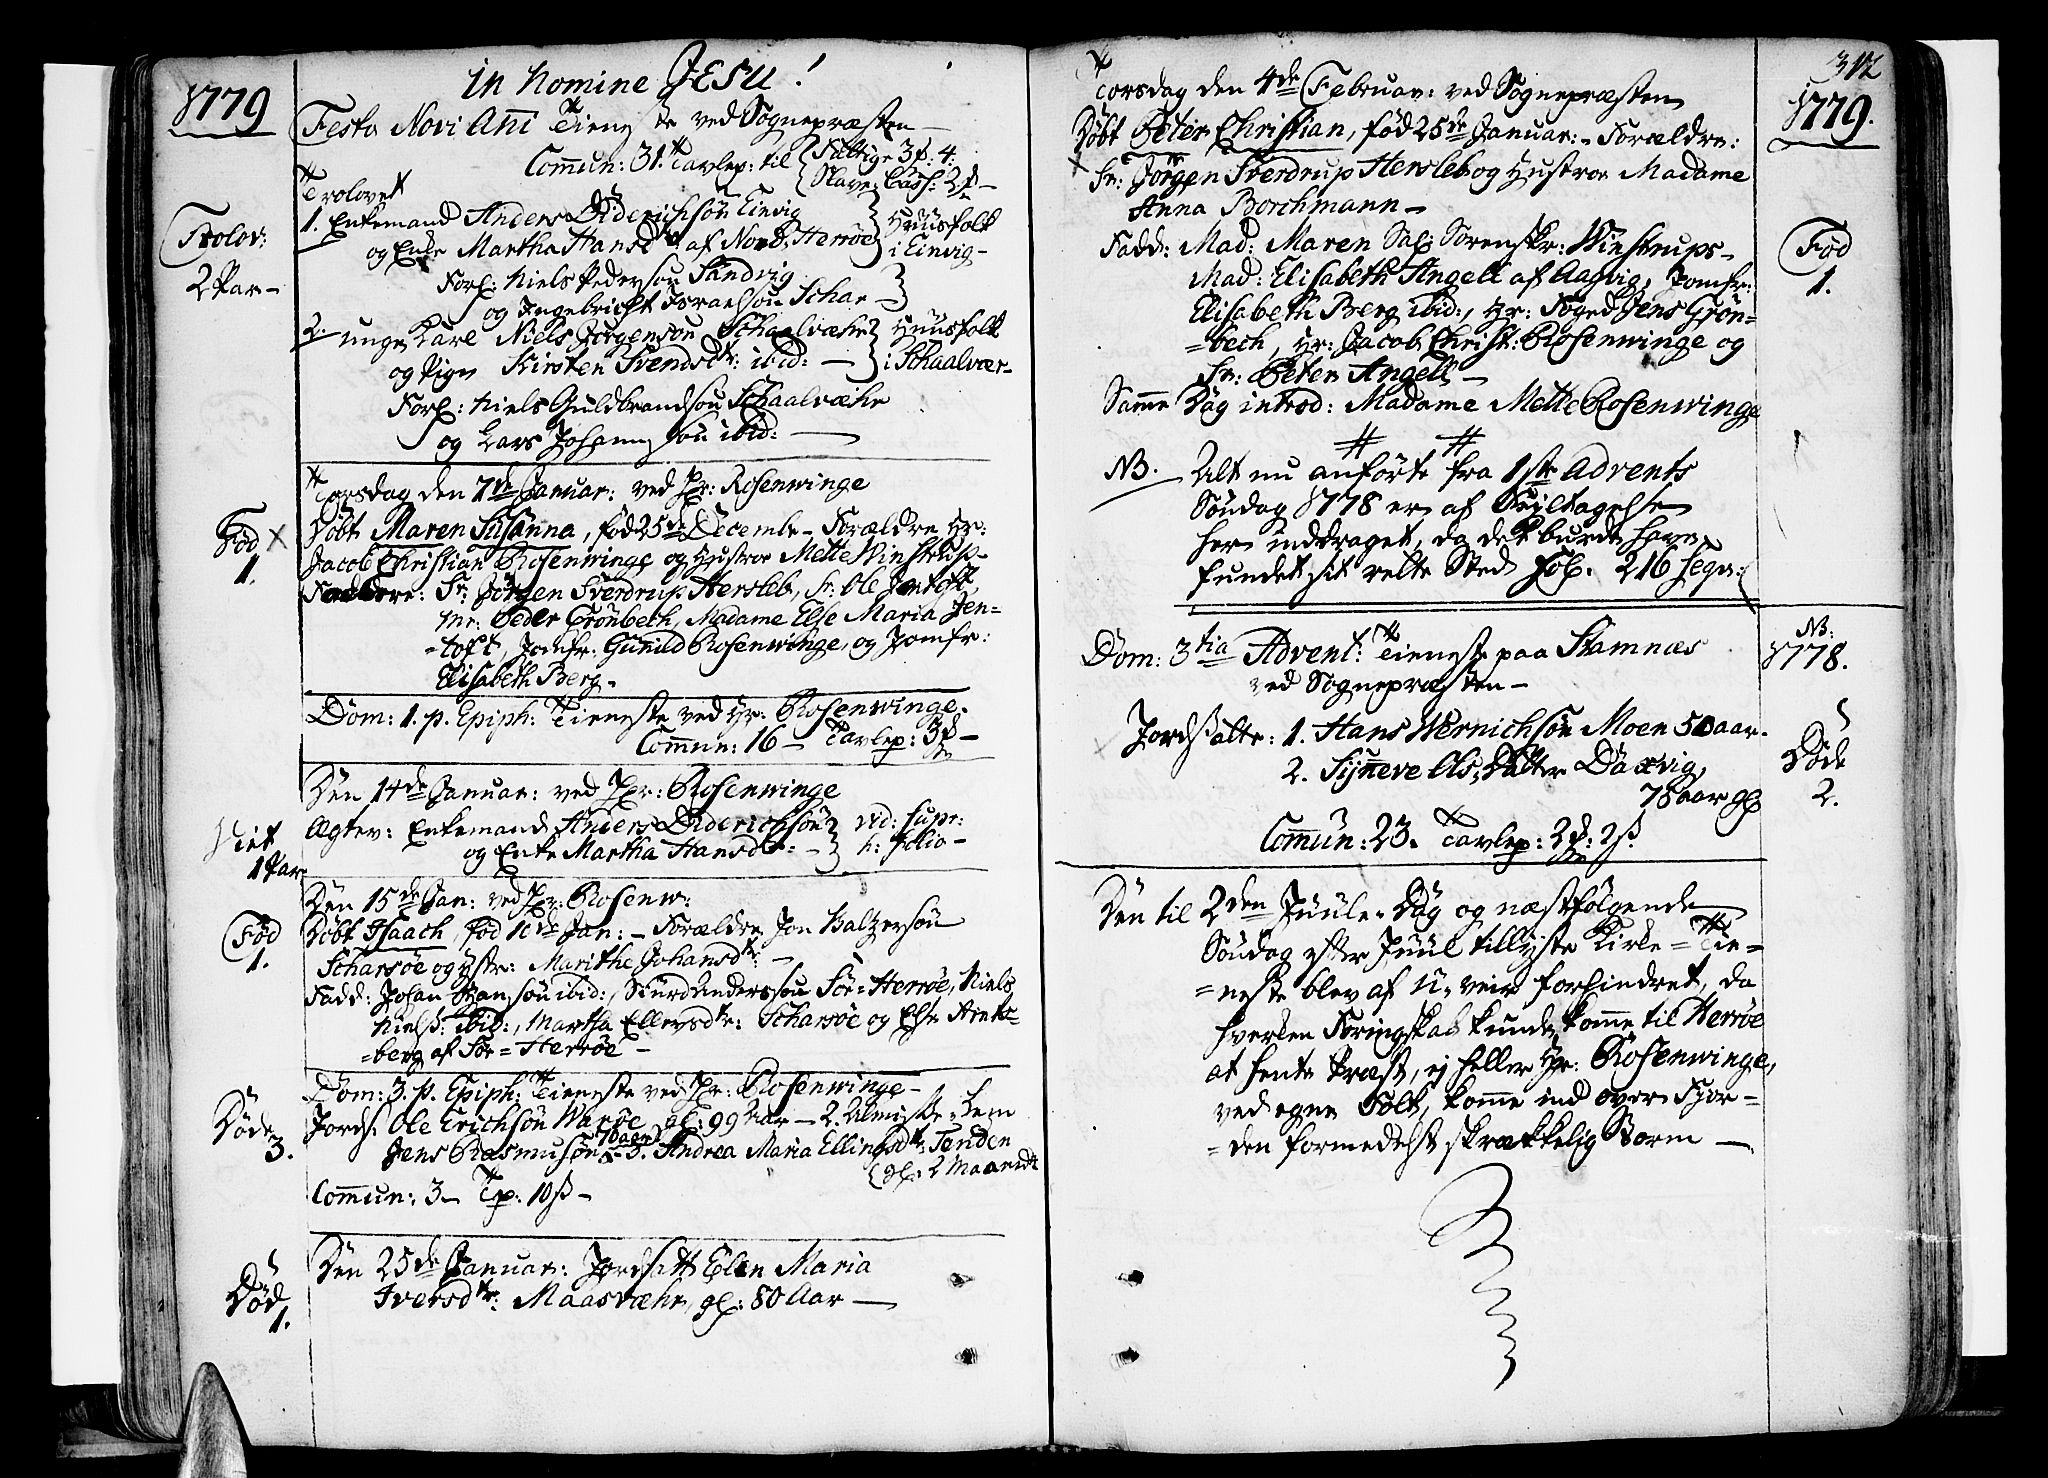 1779
in Nomine JESU!
Festo Novi Ani Tieneste ved Sognepræsten
Comun: 31. Tavlep: til { Fattige 3 : 4:
Slave: Cass: 2
Trolovet
Trolov:
2 Par -
1. Enkemand Anders Diderichsøn Einvig } Huusfolk
og Enke Martha Hansdtr af Nord-Herrøe } i Einvig -
Forl: Niels Pedersøn Sandvig
og Ingebricht Israelsøn Schar -
2. unge Karl Niels Jørgensøn Schaalvæhr } Huusfolk
og Pige Kirsten Svendsdtr: ibid: - } i Schaalvær -
Forl: Niels Guldbrandsøn Schaalvæhr
og Lars Johannesøn ibid: -
Torsdag den 7de Januar: ved Hr: Rosenwinge
Fød X
1.
Døbt Maren Susanna, fød 25de Decembr - Forældre Hr:
Jacob Christian Rosenwinge og Hustroe Mette Winstrup -
Faddere: Sr: Jørgen Sverdrup Hersleb, Sr: Ole Jentoft,
Mr: Peder Grønbech, Madame Else Maria Jen=
=toft, Jomfr: Gunild Rosenwinge, og Jomfr:
Elisabeth Berg.
Dom: 1. p. Epiph: Tieneste ved Hr: Rosenwinge.
Comun: 16 - Tavlep: 3 -
Den 14de Januar: ved Hr: Rosenwinge
Viet
1 Par
Ægtev: Enkemand Anders Diderichsøn } vid: supr:
og Enke Martha Hansdtr: - } h: folio -
Den 15de Jan: ved Hr: Rosenw:
Fød
1.
Døbt Isaach, fød 10de Jan: - Forældre Jon Baltzersøn
Scharsøe og Hstr: Marithe Johansdtr: -
Fadd: Johan Hansøn ibid:, Siurd Anderssøn Sør-Herrøe, Niels
Nielss: ibid:, Martha Ellevsdtr: Scharsøe og Else Arents=
=berg af Sør=Herrøe -
Dom: 3. p. Epiph: Tieneste ved Hr: Rosenwinge -
Døde
3.
Jords: Ole Erichsøn Warøe gl: 99 Aar - 2. Almisse-Lem
Jens Rasmusøn 70 aar - 3. Andrea Maria Ellingsdtr: Tenden
{ gl: 2 Maaneder
Comun: 3 - Tp: 10 ß -
Død
1.
Den 25de Januar: Jordsatt Elen Maria
Iversdtr: Maasvæhr, gl: 80 Aar -
312
1779.
Torsdag den 4de Februar: ved Sognepræsten
Døbt Peter Christian, fød 25de Januar: - Forældre:
X Sr: Jørgen Sverdrup Hersleb og Hustroe Madame
Anna Borchmann -
Fød
1.
Fadd: Mad: Maren Sal: Sorenskr: Winstrups -
Mad: Elisabeth Angell af Aagvig, Jomfr:
Elisabeth Berg ibid:, Hr: Foged Jens Grøn=
=bech, Hr: Jacob Christ: Rosenwinge og
Sr: Peter Angell -
Samme Dag introd: Madame Mette Rosenwinge
# #
NB. Alt nu anførte fra 1ste Advents
Søndag 1778 er af Feiltagelse
her inddraget, da det burde have
fundet sit rette Sted Fol. 216 seqv:
NB:
1778.
Dom: 3tia Advent: Tieneste paa Stamnæs
ved Sognepræsten -
Døde
2.
Jordsatte: 1. Hans Wernichsøn Moen 50 aar.
2. Sijneve Ols-Datter Daxvig,
75 aar gl
Comun: 23. Tavlep: 2 : 2ß.
Den til 2den Juule-Dag og næstfølgende
Søndag efter Juul tillyste Kirke=Tie=
=neste blev af U-veir forhindret, da
hverken Føringskab kunde komme til Herrøe
at hente Præst, ej heller Hr: Rosenwinge,
ved egne Folk, komme ind over Fjor=
=den formedelst skrækkelig Storm -